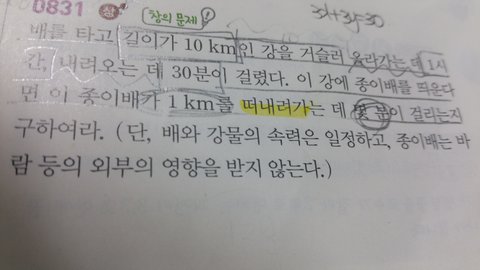 0831 상 창의 문제 ! 3x+3y=30
배를 타고 길이가 10 km인 강을 거슬러 올라가는 데 1시
간, 내려오는 데 30분이 걸렸다. 이 강에 종이배를 띄운다
면 이 종이배가 1 km를 떠내려가는 데 몇 분이 걸리는지
구하여라. (단, 배와 강물의 속력은 일정하고, 종이배는 바
람 등의 외부의 영향을 받지 않는다.)